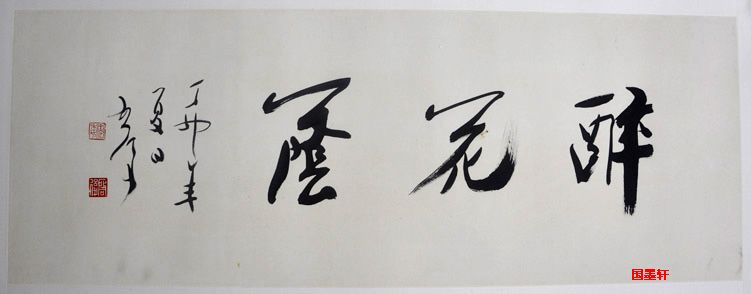 醉花蔭
丁卯年
夏日
国墨轩